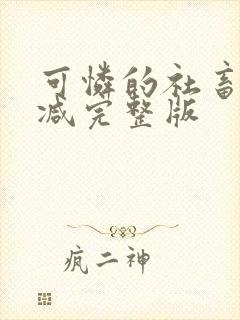 可憐的社畜
減完整版
疯二神